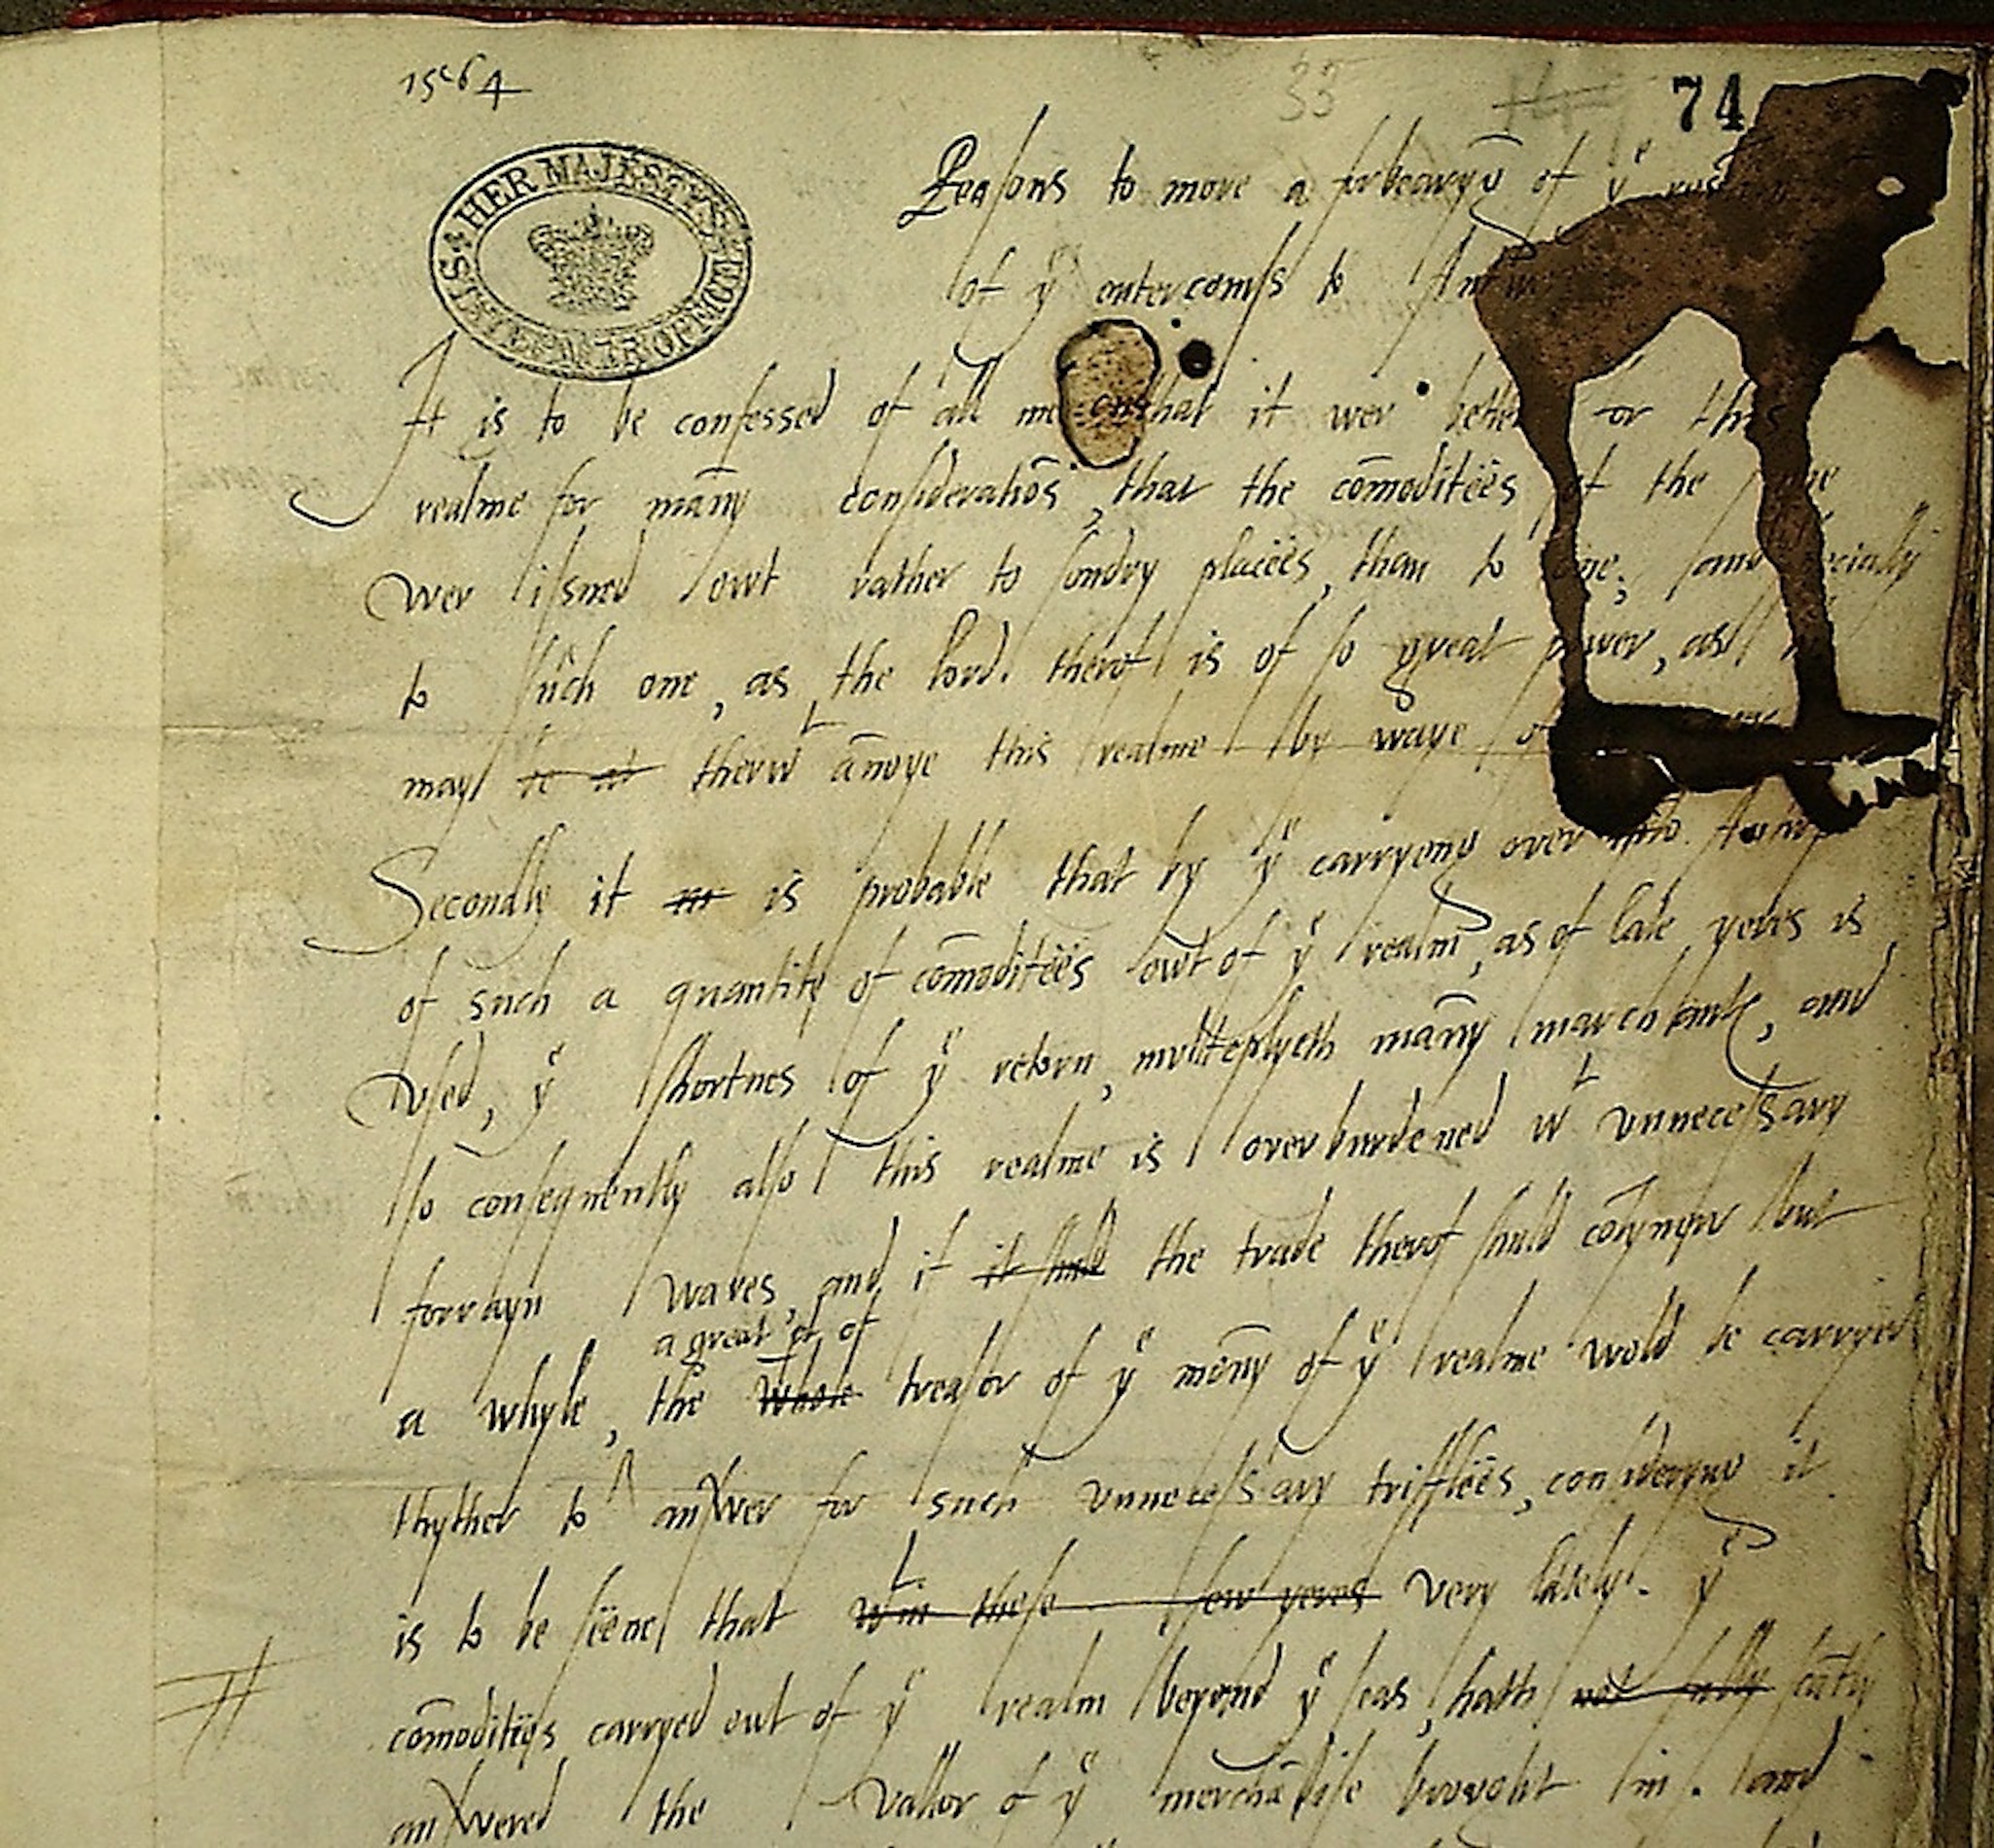 1564
33
74
HER MAJESTY'S STATE PAPER OFFICE
Reasons to move a forbearyng of yͤ
of yͤ entercoms to Antw
It is to be confessed of all men that it wer better for this
realme for many consideratiōs, that the cōmoditees of the same
wer issued owt rather to sondry placees, than to one, and specially
to such one, as the lord therof is of so great power, as
may be at therwᵗ ānoye this realme by waye of
Secondly it is probable that by yͤ carryeng over
of such a quantite of cōmoditees owt of yͤ realm, as of late yeres is
vsed, yͤ shortnes of yͤ retorn, multeplyeth māny marchantes, and
so consequently also this realme is overburdened wᵗ vnnecessary
forrayn wares, and if it shuld the trade therof shuld cōtynew but
a great pt of
a whyle, the whole treasor of yͤ mōny of yͤ realme wold be carryed
thyther to answer for such vnnecessary trifflees, consideryng it
is to be sëene that wᵗin these few yeres very lately yͤ
cōmodities carryed out of yͤ realm beyond yͤ seas, hath not fully
answered the vallor of yͤ merchādise brought in. and